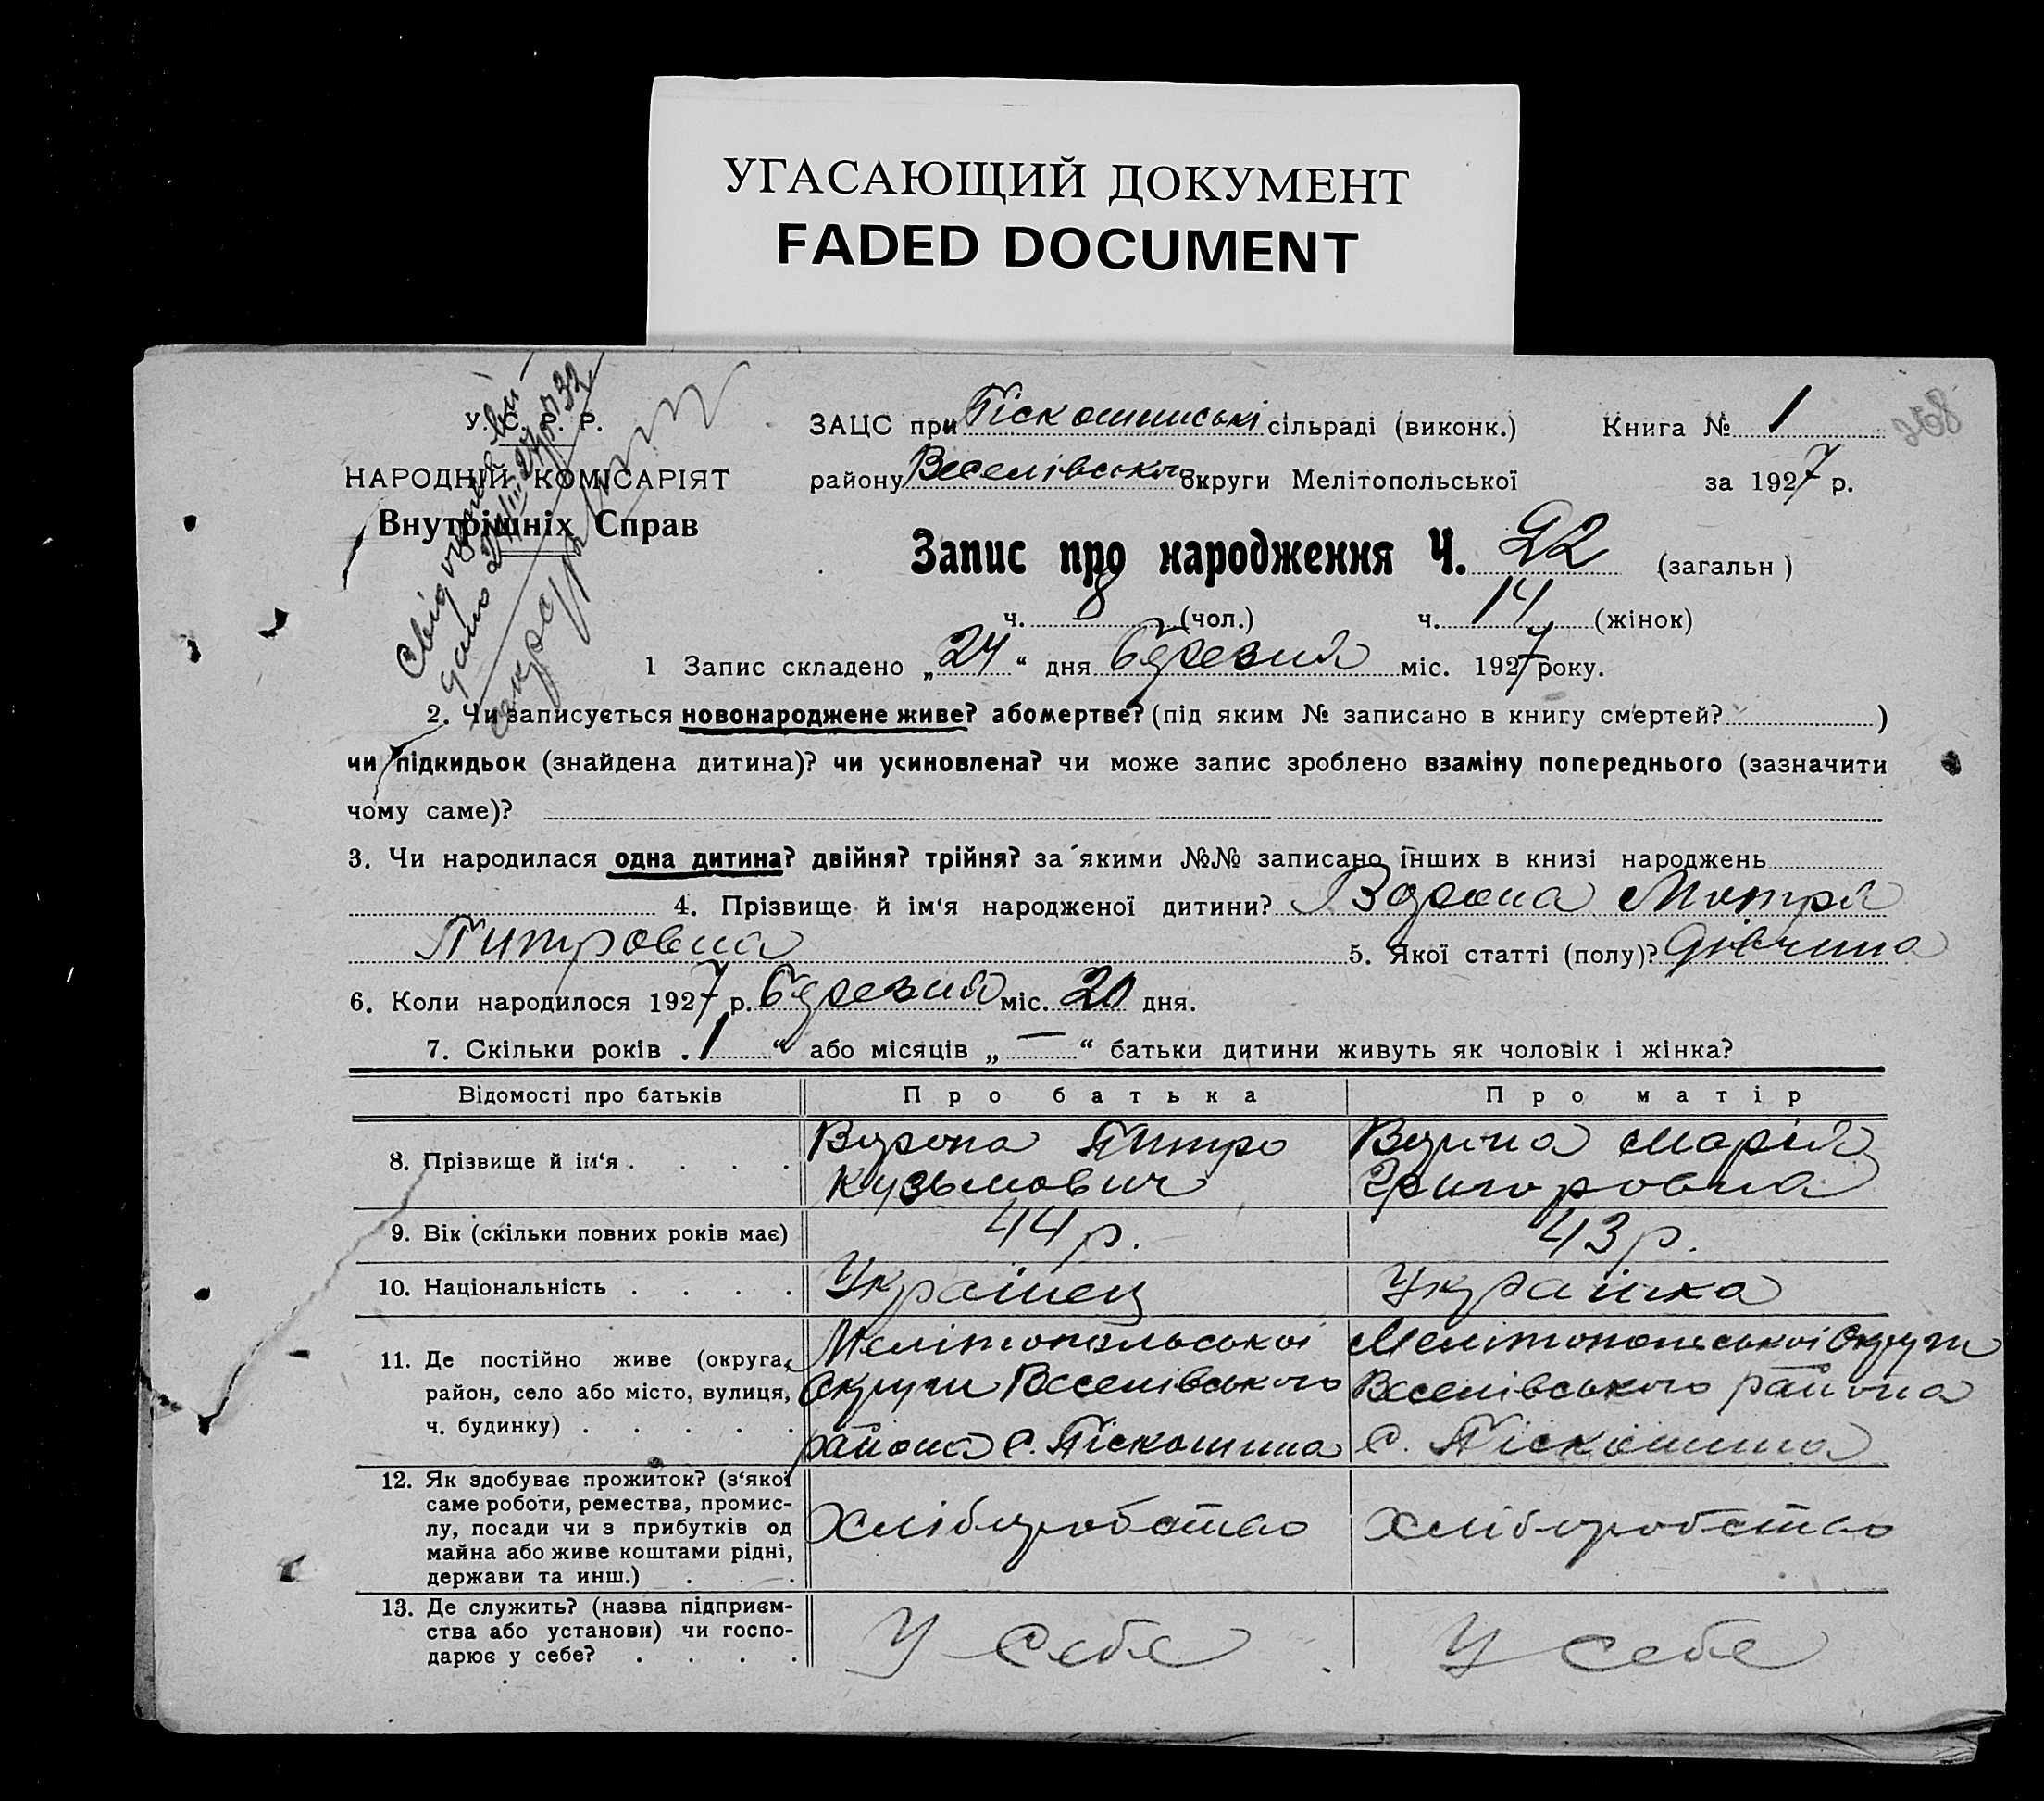 УГАСАЮЩИЙ ДОКУМЕНТ
FADED DOCUMENT
У. С. Р. Р.
НАРОДНІЙ КОМІСАРІЯТ
Внутрішніх Справ
ЗАЦС при Піскошинській сільраді (виконк.) Книга № 1
258
району Веселівського округи Мелітопольської за 1927 р.
Запис про народження Ч. 22 (загальн)
ч. 8 (чол.) ч. 14 (жінок)
1 Запис складено „24“ дня березня міс. 1927 року.
2. Чи записується новонароджене живе? або мертве? (під яким № записано в книгу смертей? )
чи підкидьок (знайдена дитина)? чи усиновлена? чи може запис зроблено взаміну попереднього (зазначити
чому саме)?
3. Чи народилася одна дитина? двійня? трійня? за якими №№ записано інших в книзі народжень
4. Прізвище й ім‘я народженої дитини? Ворона Мотря
Питровна 5. Якої статті (полу)? дівчина
6. Коли народилося 1927 р. березня міс. 20 дня.
7. Скільки років „1“ або місяців „—“ батьки дитини живуть як чоловік і жінка?
Відомості про батьків Про батька Про матір
8. Прізвище й ім‘я . . . . Ворона Питро Ворона Марія
Кузьмович Григоровна
9. Вік (скільки повних років має) 44 р. 43 р.
10. Національність . . . . Українец Украінка
11. Де постійно живе (округа, Мелітопольськоі Мелитопольськоі Округи
район, село або місто, вулиця, Округи Веселівського Веселівського района
ч. будинку) . . . . . района с. Піскошина с. Піскошина
12. Як здобуває прожиток? (з‘якої
саме роботи, ремества, промис-
лу, посади чи з прибутків од Хліборобство Хліборобство
майна або живе коштами рідні,
держави та инш.) . . .
13. Де служить? (назва підприєм-
ства або установи) чи госпо- У себе У себе
дарює у себе? . . . .